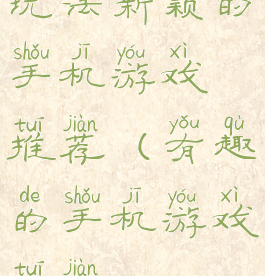 玩法新颖的
shǒu jī yóu xì
手机游戏
tuī jiàn yǒu qù
推荐（有趣
de shǒu jī yóu xì
的手机游戏
tuī jiàn